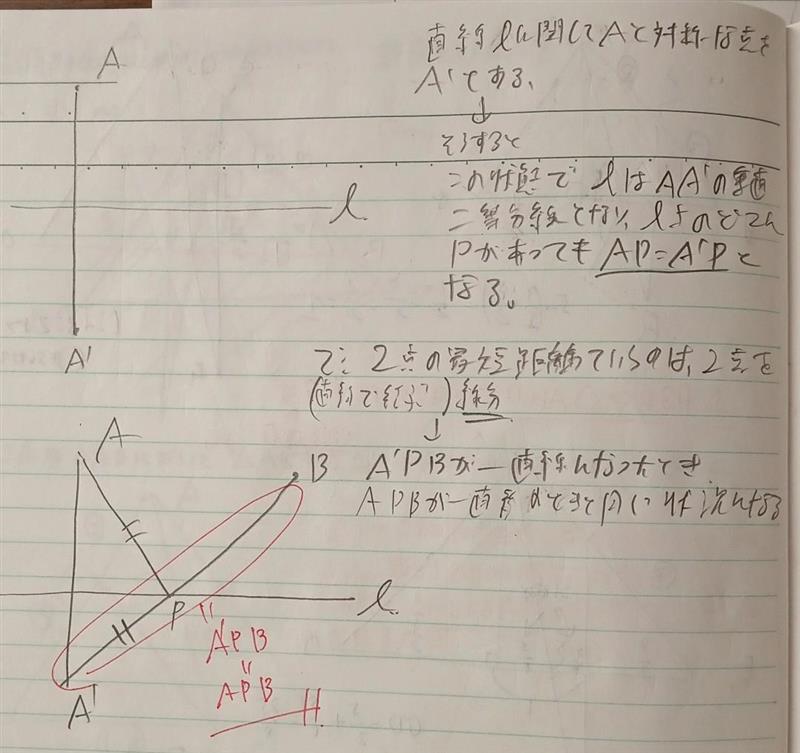 A
直線lに関してAと対称な点を
A'とする、
↓
そうすると
この状態で lはAA'の垂直
二等分線となり、l上のどこに
Pがあっても AP=A'Pと
なる。
l
A'
で、2点の最短距離ていうのは、2点を
(直線で結ぶ) 線分
↓
A
B
A'PBが一直線になったとき
APBが一直線のときと同じ状況になる
P
l
A'
〃
A'PB
〃
APB